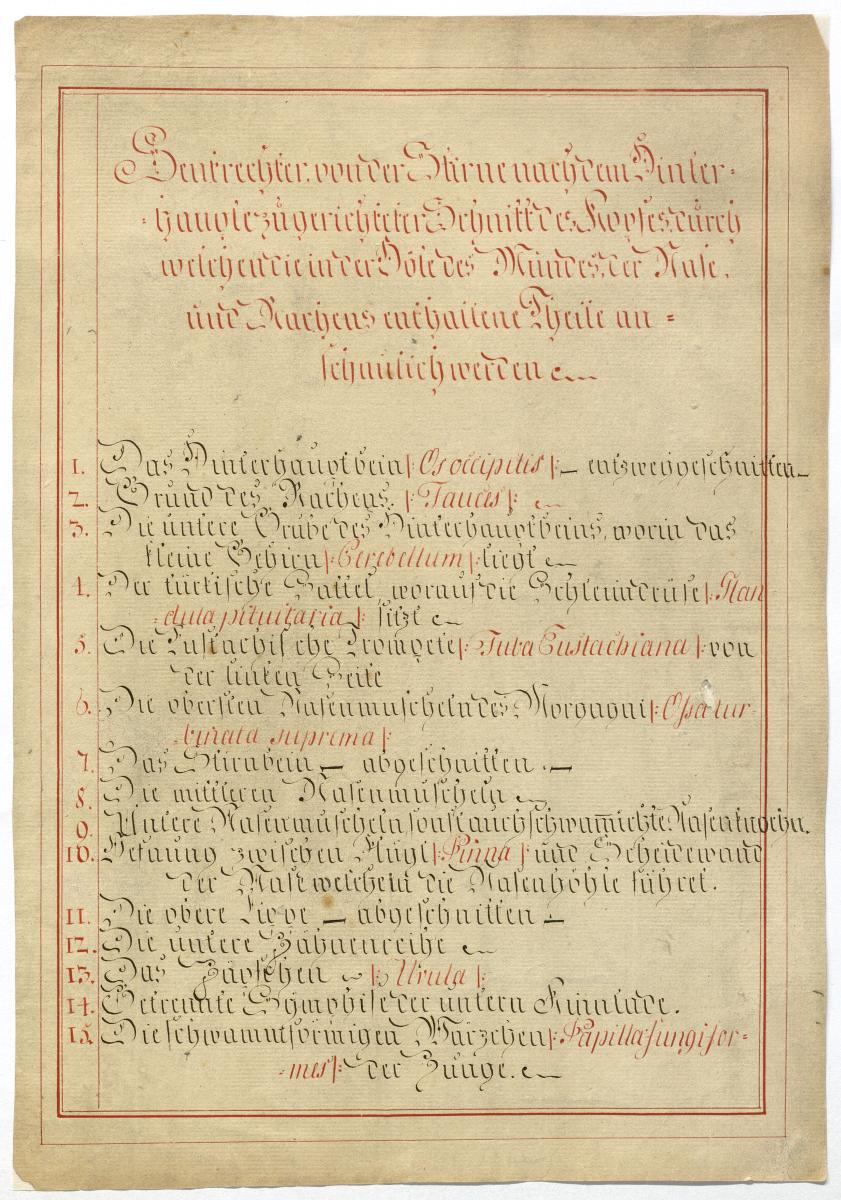 Senkrechter, von der Stirne nach dem Hinter-
-haupte zu gerichteter Schnitt des Kopfes, durch
welchen die in der Höle des Mundes, der Nase,
und Rachens enthaltene Theile an-
schaulich werden
1. Das Hinterhauptbein |: Os occipitis :| – entzweygeschnitten –
2. Grund des Rachens. |: Fauces :|
3. Die untere Grube des Hinterhauptbeins, worin das
kleine Gehirn |: Cerebellum :| liegt
4. Der türkische Sattel, worauf die Schleimdrüse |: Glan
-dula pituitaria :| sitzt
5. Die Eustachische Trompete |: Tuba Eustachiana :| von
der linken Seite
6. Die obersten Nasenmuscheln des Morgagni |: Ossa tur-
-binata suprema :|
7. Das Stirnbein – abgeschnitten. –
8. Die mittleren Nasenmuscheln
9. Untere Nasenmuscheln, sonst auch schwam̅ichte Nasenknochen.
10. zwischen Flügl |: Pinna :| und Scheidewand
der Nase welche in die Nasenhöhle führet.
11. Die obere Lippe – abgeschnitten –
12. Die untere Zähnenreihe
13. Das Zäpfchen |: Uvula :|
14. Getrennte Symphise der untern Kinnlade.
15. Die schwammförmigen Wärzchen |: Papillæ fungifor-
-mes :| der Zunge.